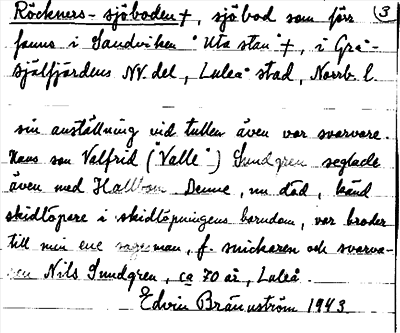 Röckners-sjöboden†, sjöbod som förr (3
fanns i Sandviken "Uta stan"†, i Grå-
själfjärdens NV. del, Luleå stad, Norrb. l.
sin anställning vid tullen även var svarvare.
Hans son Valfrid ("Valle") Sundgren seglade
även med Hallbom. Denne, nu död, känd
skidlöpare i skidlöpningens barndom, var broder
till min ene sagesman, f. snickaren och svarva-
ren Nils Sundgren, ca 70 år, Luleå.
Edvin Brännström 1943.